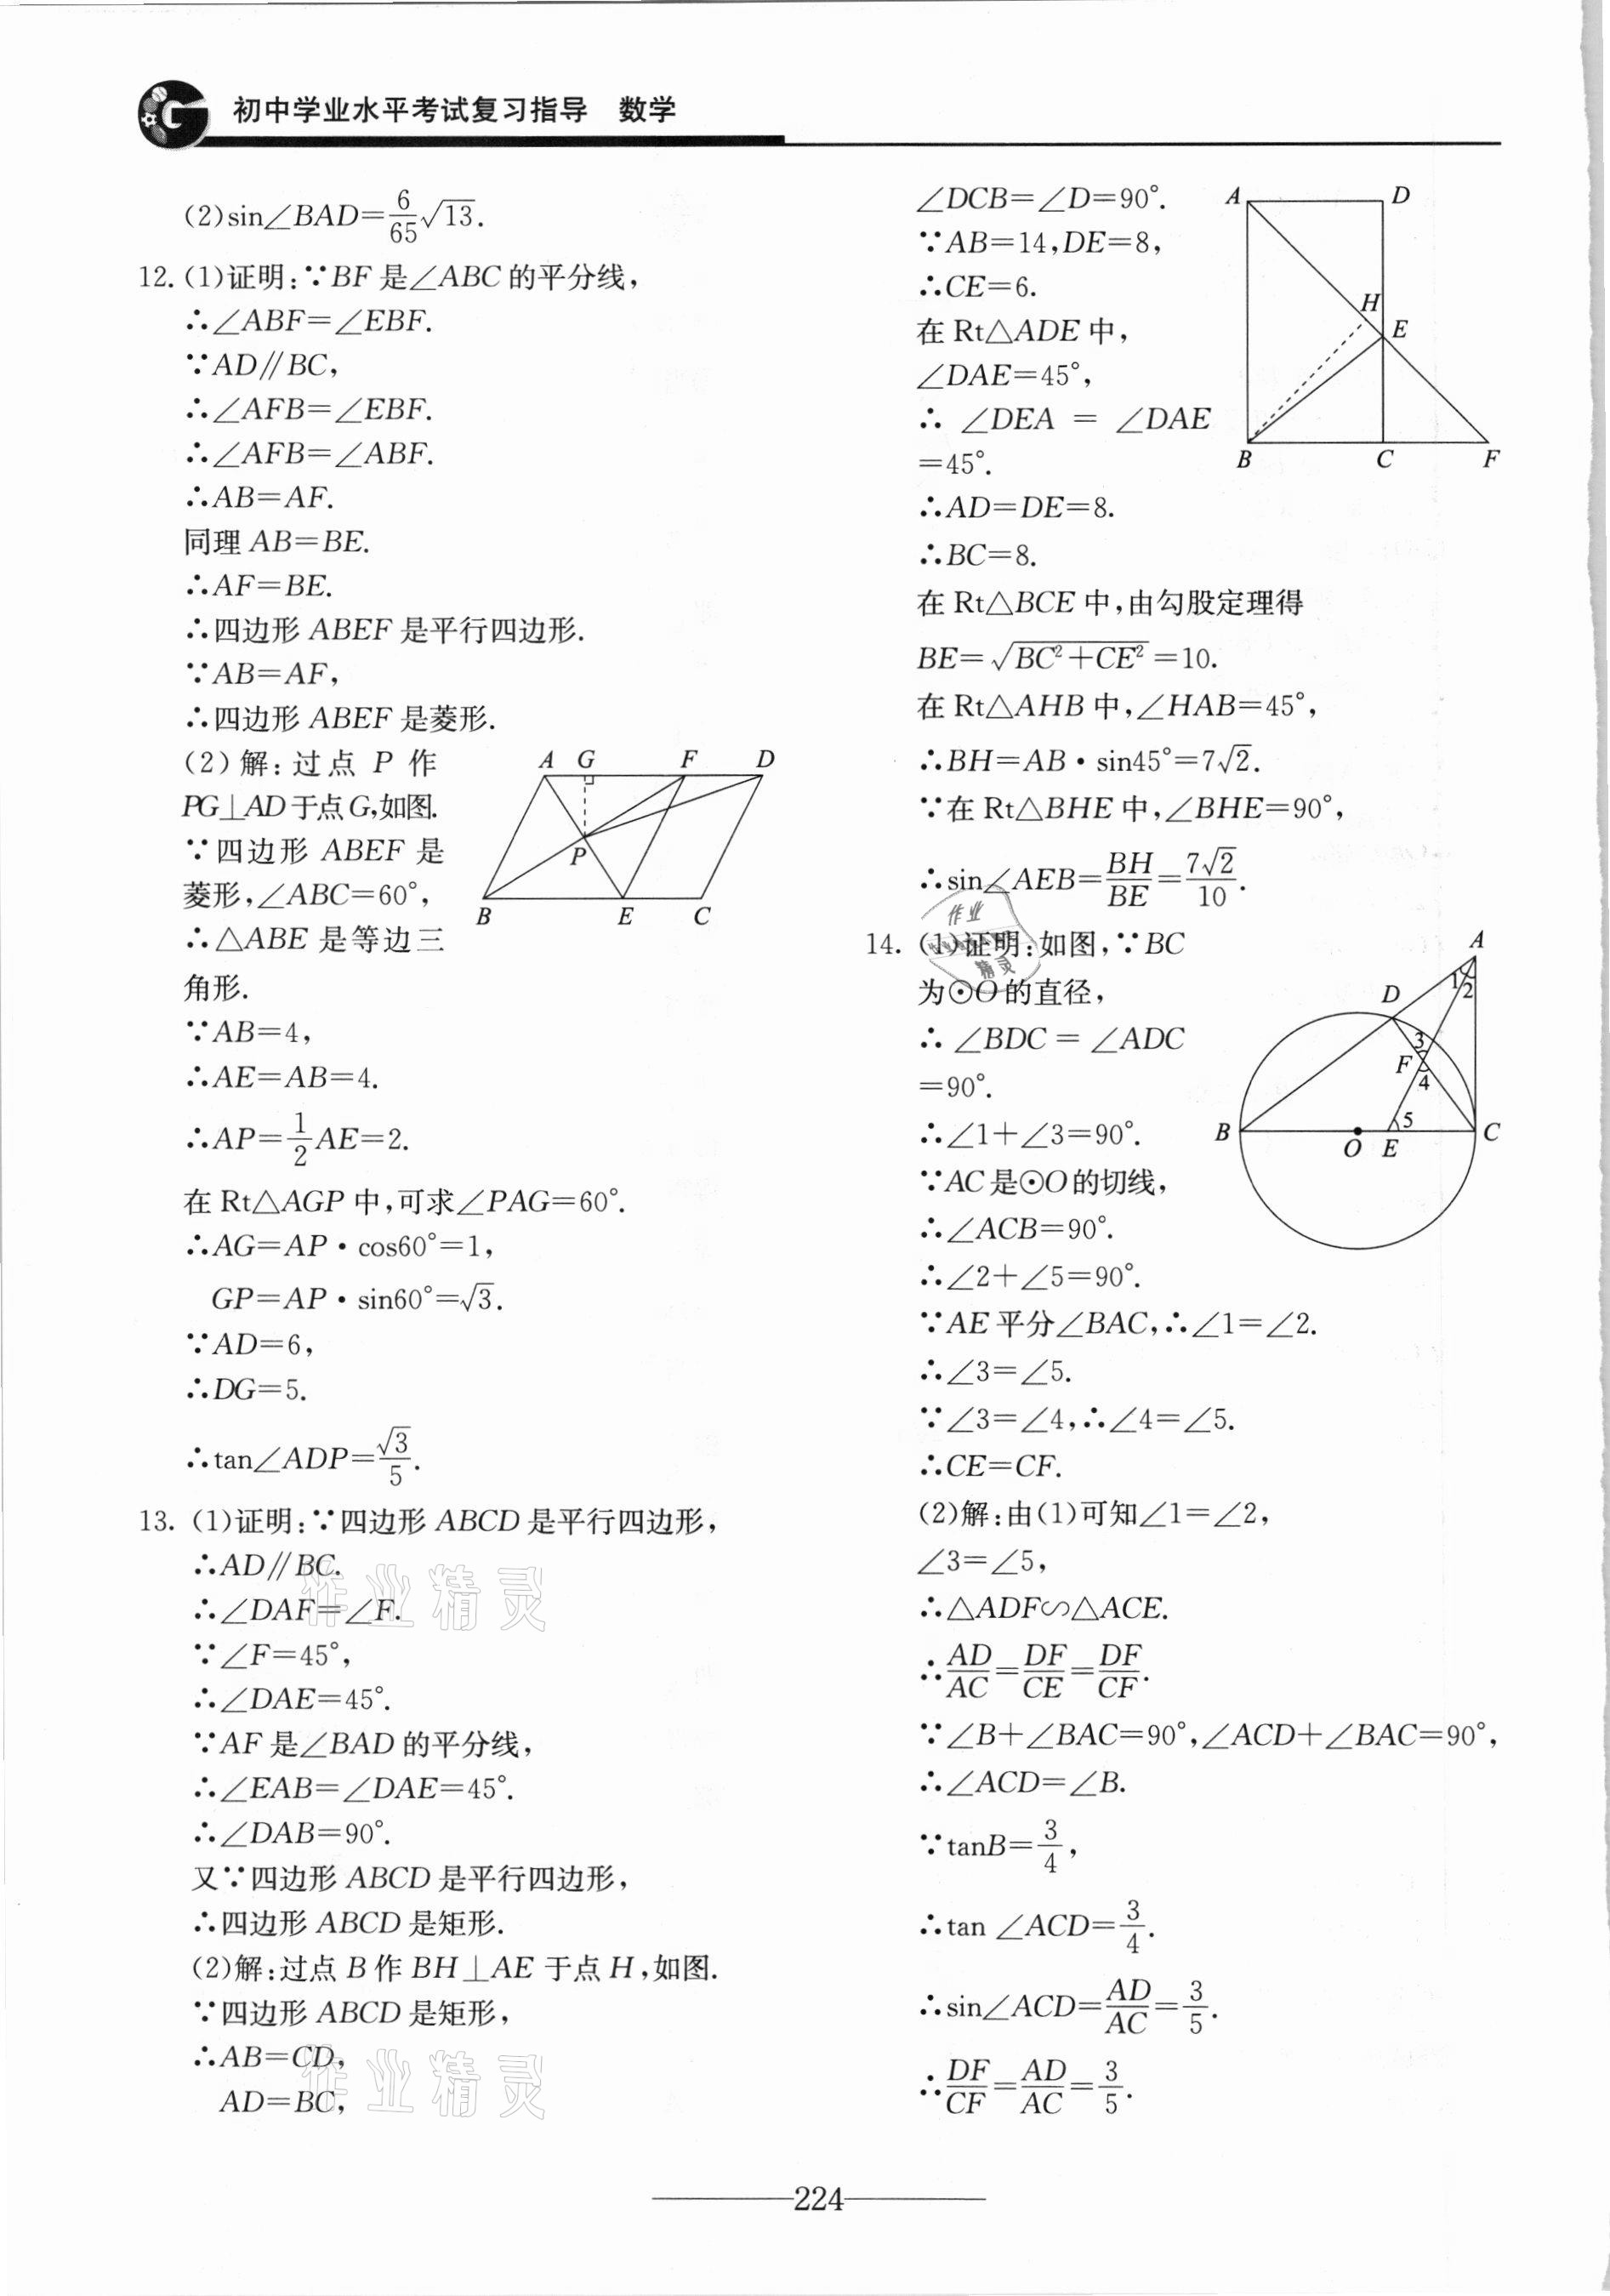 初中学业水平考试复习指导 数学
(2)sin∠BAD=6/65√13.
12. (1)证明:∵BF是∠ABC的平分线,
∴∠ABF=∠EBF.
∵AD∥BC,
∴∠AFB=∠EBF.
∴∠AFB=∠ABF.
∴AB=AF.
同理AB=BE.
∴AF=BE.
∴四边形ABEF是平行四边形.
∵AB=AF,
∴四边形ABEF是菱形.
(2)解:过点P作
PG⊥AD于点G,如图.
∵四边形ABEF是
菱形,∠ABC=60°,
∴△ABE是等边三
角形.
A G F D
P
B E C
∵AB=4,
∴AE=AB=4.
∴AP=1/2AE=2.
在Rt△AGP中,可求∠PAG=60°.
∴AG=AP·cos60°=1,
GP=AP·sin60°=√3.
∵AD=6,
∴DG=5.
∴tan∠ADP=√3/5.
13. (1)证明:∵四边形ABCD是平行四边形,
∴AD∥BC.
∴∠DAF=∠F.
∵∠F=45°,
∴∠DAE=45°.
∵AF是∠BAD的平分线,
∴∠EAB=∠DAE=45°.
∴∠DAB=90°.
又∵四边形ABCD是平行四边形,
∴四边形ABCD是矩形.
(2)解:过点B作BH⊥AE于点H,如图.
∵四边形ABCD是矩形,
∴AB=CD,
AD=BC,
作业精灵
作业精灵
∠DCB=∠D=90°.
∵AB=14,DE=8,
∴CE=6.
在Rt△ADE中,
∠DAE=45°,
∴ ∠DEA = ∠DAE
=45°.
A D
H
E
B C F
∴AD=DE=8.
∴BC=8.
在Rt△BCE中,由勾股定理得
BE=√(BC²+CE²)=10.
在Rt△AHB中,∠HAB=45°,
∴BH=AB·sin45°=7√2.
∵在Rt△BHE中,∠BHE=90°,
∴sin∠AEB=BH/BE=7√2/10.
14. (1)证明:如图,∵BC
为⊙O的直径,
∴ ∠BDC = ∠ADC
=90°.
作业
精灵
∴∠1+∠3=90°.
∵AC是⊙O的切线,
∴∠ACB=90°.
∴∠2+∠5=90°.
A
1 2
D
3
F
4
B 5 C
O E
∵AE平分∠BAC,∴∠1=∠2.
∴∠3=∠5.
∵∠3=∠4,∴∠4=∠5.
∴CE=CF.
(2)解:由(1)可知∠1=∠2,
∠3=∠5,
∴△ADF∽△ACE.
∴AD/AC=DF/CE=DF/CF.
∵∠B+∠BAC=90°,∠ACD+∠BAC=90°,
∴∠ACD=∠B.
∵tanB=3/4,
∴tan ∠ACD=3/4.
∴sin∠ACD=AD/AC=3/5.
∴DF/CF=AD/AC=3/5.
224